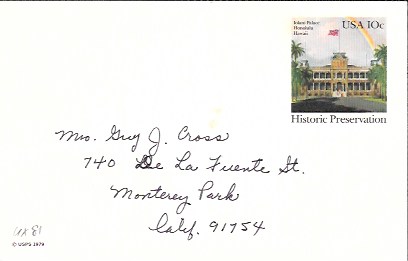 Iolani Palace
Honolulu
Hawaii
USA 10c
Historic Preservation
Mrs. Guy J. Cross
740 De La Fuente St.
Monterey Park
Calif. 91754
UX 81
© USPS 1979